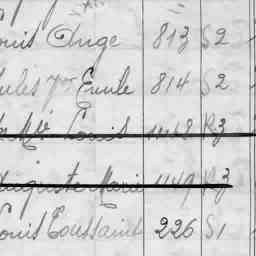 ouis Ange 813 S2
ules Emile 814 S2
Louis R3
Auguste Marie 1149 R3
ouis Toussaint 226 S1